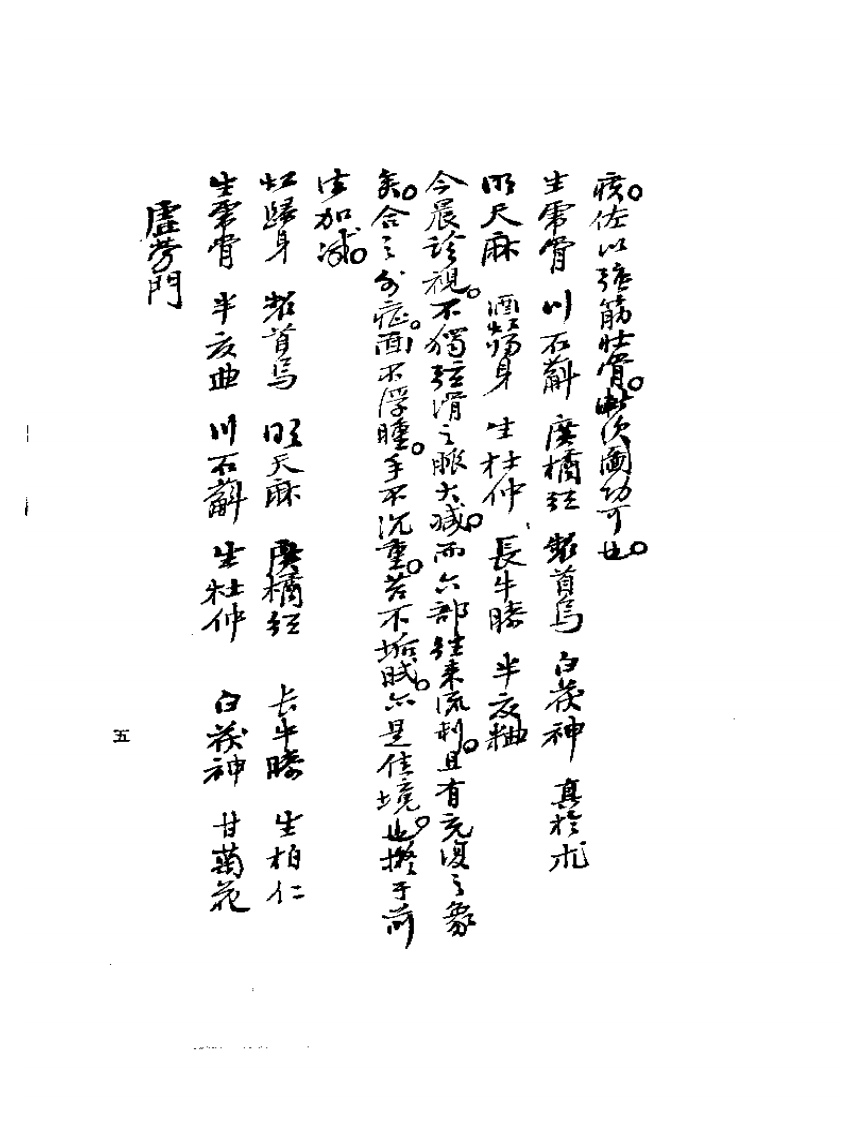 痰。佐以強筋壯骨。漸次圖功可也。
生虎骨 川石斛 廣橘紅 製首烏 白茯神 真於朮
明天麻 酒歸身 生杜仲 長牛膝 半夏粬
今晨診視。不獨弦滑之脈大减。而六部往來流利。且有充復之象
矣。合之外症。面不浮腫。手不沉重。苔不垢膩。亦是佳境也。擬于前
法加减。
歸身 製首烏 明天麻 廣橘紅 長牛膝 生柏仁
生虎骨 半夏曲 川石斛 生杜仲 白茯神 甘菊花
虛勞門
五